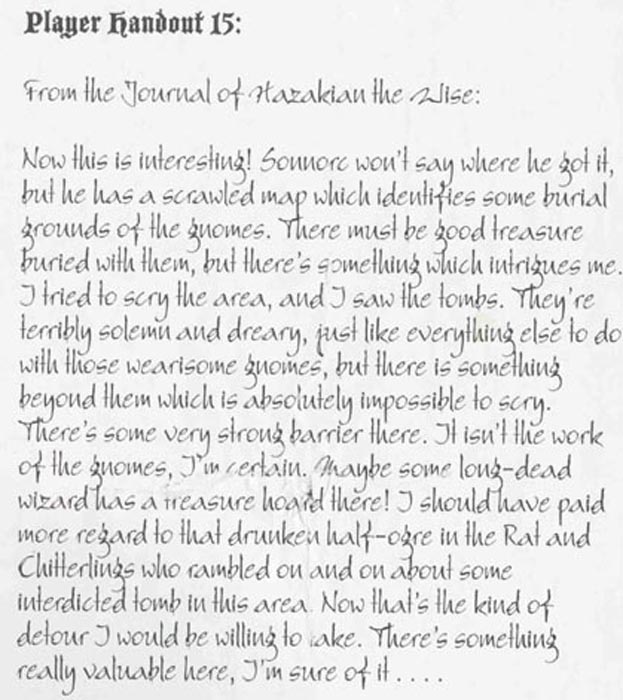 Player Handout 15:
From the Journal of Hazakian the Wise:
Now this is interesting! Sonnorc won't say where he got it,
but he has a scrawled map which identifies some burial
grounds of the gnomes. There must be good treasure
buried with them, but there's something which intrigues me.
I tried to scry the area, and I saw the tombs. They're
terribly solemn and dreary, just like everything else to do
with those wearisome gnomes, but there is something
beyond them which is absolutely impossible to scry.
There's some very strong barrier there. It isn't the work
of the gnomes, I'm certain. Maybe some long-dead
wizard has a treasure hoard there! I should have paid
more regard to that drunken half-ogre in the Rat and
Chitterlings who rambled on and on about some
interdicted tomb in this area. Now that's the kind of
detour I would be willing to take. There's something
really valuable here, I'm sure of it . . . .